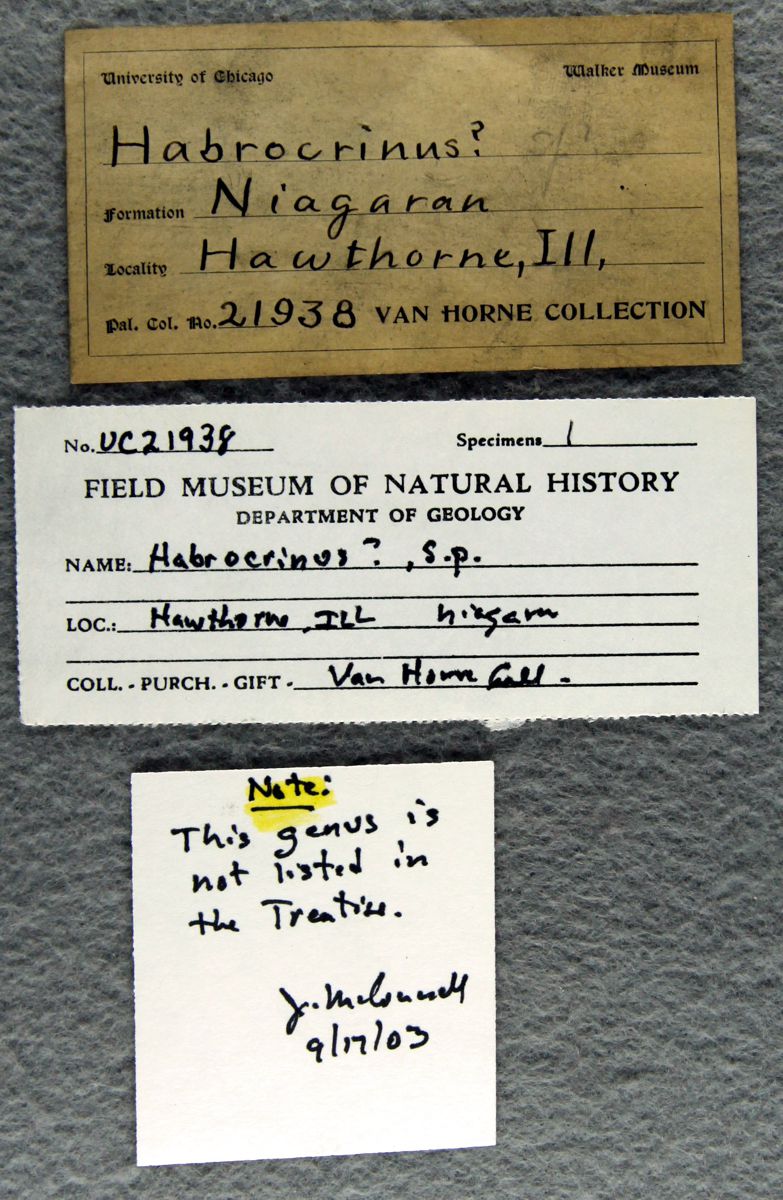 University of Chicago Walker Museum
Habrocrinus?
Formation Niagaran
Locality Hawthorne, Ill,
Pal. Col. No. 21938 VAN HORNE COLLECTION
No. UC21938 Specimens 1
FIELD MUSEUM OF NATURAL HISTORY
DEPARTMENT OF GEOLOGY
NAME: Habrocrinus?, s.p.
LOC.: Hawthorne, ILL niagara
COLL. - PURCH. - GIFT - Van Horne Coll.
Note:
This genus is
not listed in
the Treatise.
9/17/03